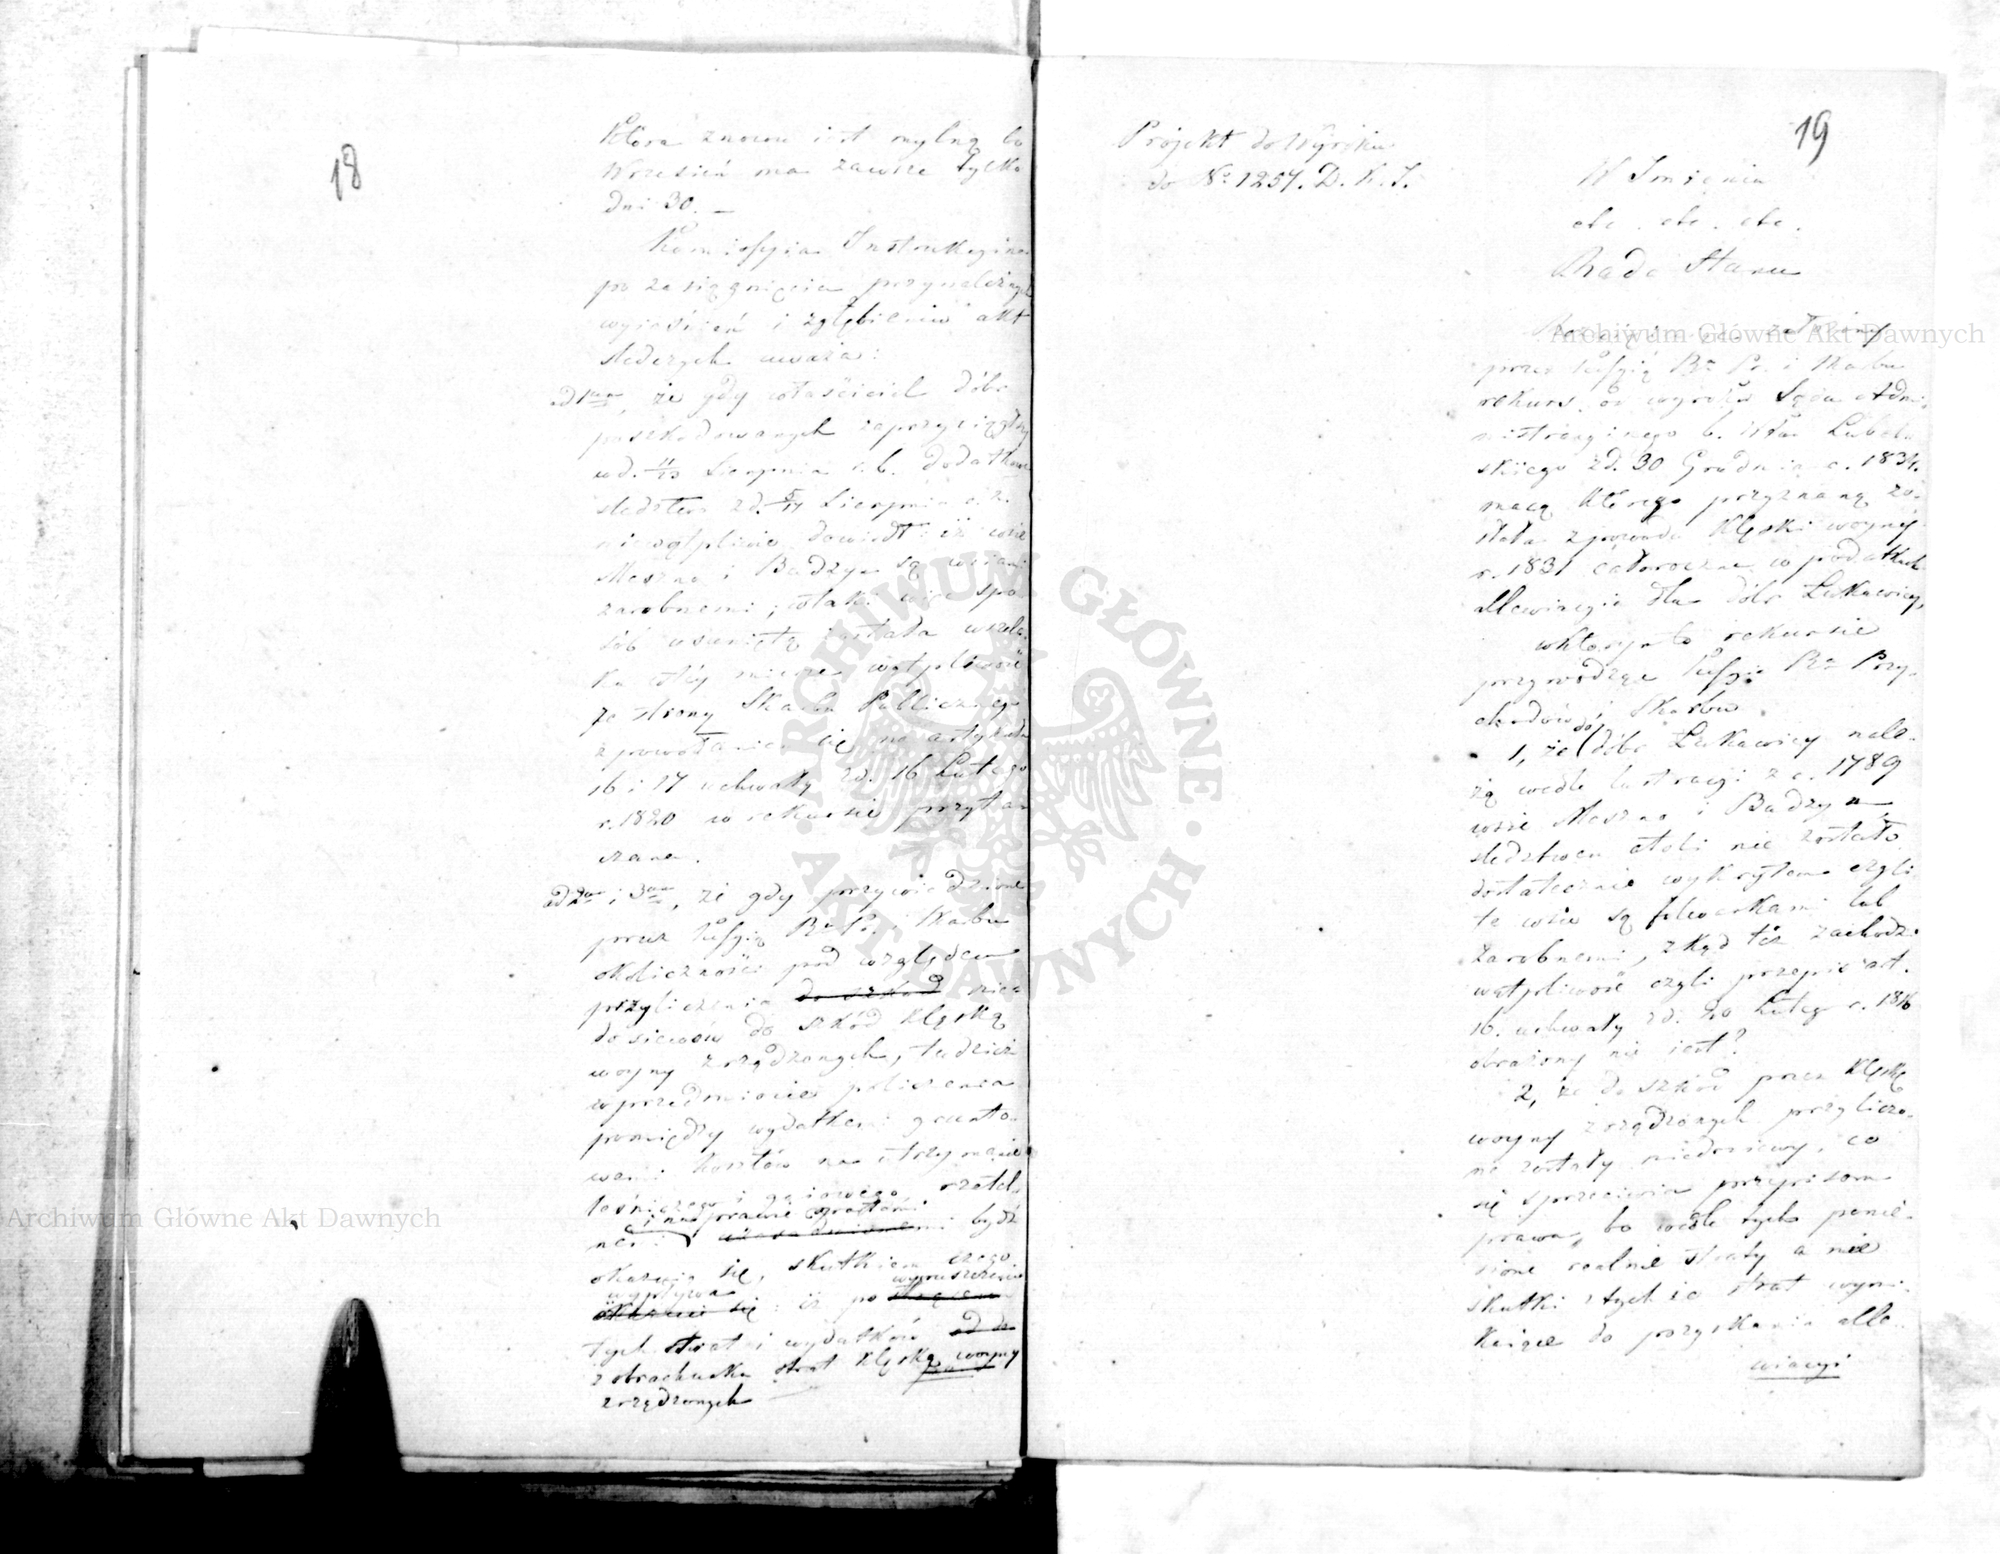 18
która znowu iest mylną bo
Wrzesień ma zawsze tylko
dni 30. —
Kommissyia Instrukcyina
po zasiągnięciu przynależnych
wyiaśnień i zgłębieniu akt
śledczych uważa:
ad 1um, że gdy właściciel dóbr
poszkodowanych zaprzysięgłszy
w d. 11/13 Sierpnia r. b. dodatkowe
śledztwo z d. 5/17 Sierpnia r. z.
niewątpliwie dowiódł: iż wsie
Meszno i Budzyn są wsiami
zarobnemi; w taki więc spo-
sób usuniętą została wszel-
ka w téy mierze wątpliwość
ze strony Skarbu Publicznego
z powołaniem się na artykuła
16 i 17 uchwały z d. 16 Lutego
r. 1820 w rekursie przyta-
czana.
ad 2um i 3um, że gdy przywiedzione
przez Kssyią Rz. Pr. i Skarbu
okoliczności pod względem
przyliczenia do szkód nied-
dosiewów do szkód klęską
woyny zrządzonych, tudzież
w przedmiocie policzenia
pomiędzy wydatkami grunto-
wemi kosztów na utrzymanie
leśniczego i gaiowego rzetel-
i na prawie opartemi
nemi bydź
okazuią się, skutkiem czego
wypływa wypuszczeniu
okazuie się: iż po
tych strat i wydatków od do
z obrachunku strat klęską woyny
zrządzonych
19
Projekt do Wyroku
do No 1257. D. K. I.
W Imieniu
etc. etc. etc.
Rada Stanu
Archiwum Główne Akt Dawnych
przez Kssyią Rz. Pr. i Skarbu
rekurs od wyroku Sądu Admi-
nistracyinego b. Wtwa Lubel-
skiego z d. 30 Grudnia r. 1834.
mocą którego przyznaną zo-
stała z powodu klęski woyny
r. 1831 całoroczna w podatkach
allewiacyia dla dóbr Łukawicy,
w którym to rekursie
przywodząc Kssyia Rz. Przy-
chodów i Skarbu
1, że do dóbr Łukawicy nale-
żą wedle lustracyi z r. 1789
wsie Meszno i Budzyn,
śledztwem atoli nie zostało
dostatecznie wykrytem czyli
te wsie są folwarkami lub
zarobnemi, zkąd też zachodzi
wątpliwość czyli przepis art.
16. uchwały z d. 20 Lutego r. 1816
obrażony nie iest?
2, że do szkód przez klęskę
woyny zrządzonych przyliczo-
ne zostały niedosiewy, co
się sprzeciwia przepisom
prawa, bo wedle tych ponie-
sione realnie straty a nie
skutki z tychże strat wyni-
kaiące do pozyskania alle-
wiacyi
Archiwum Główne Akt Dawnych
ARCHIWUM GŁÓWNE · AKT DAWNYCH ·